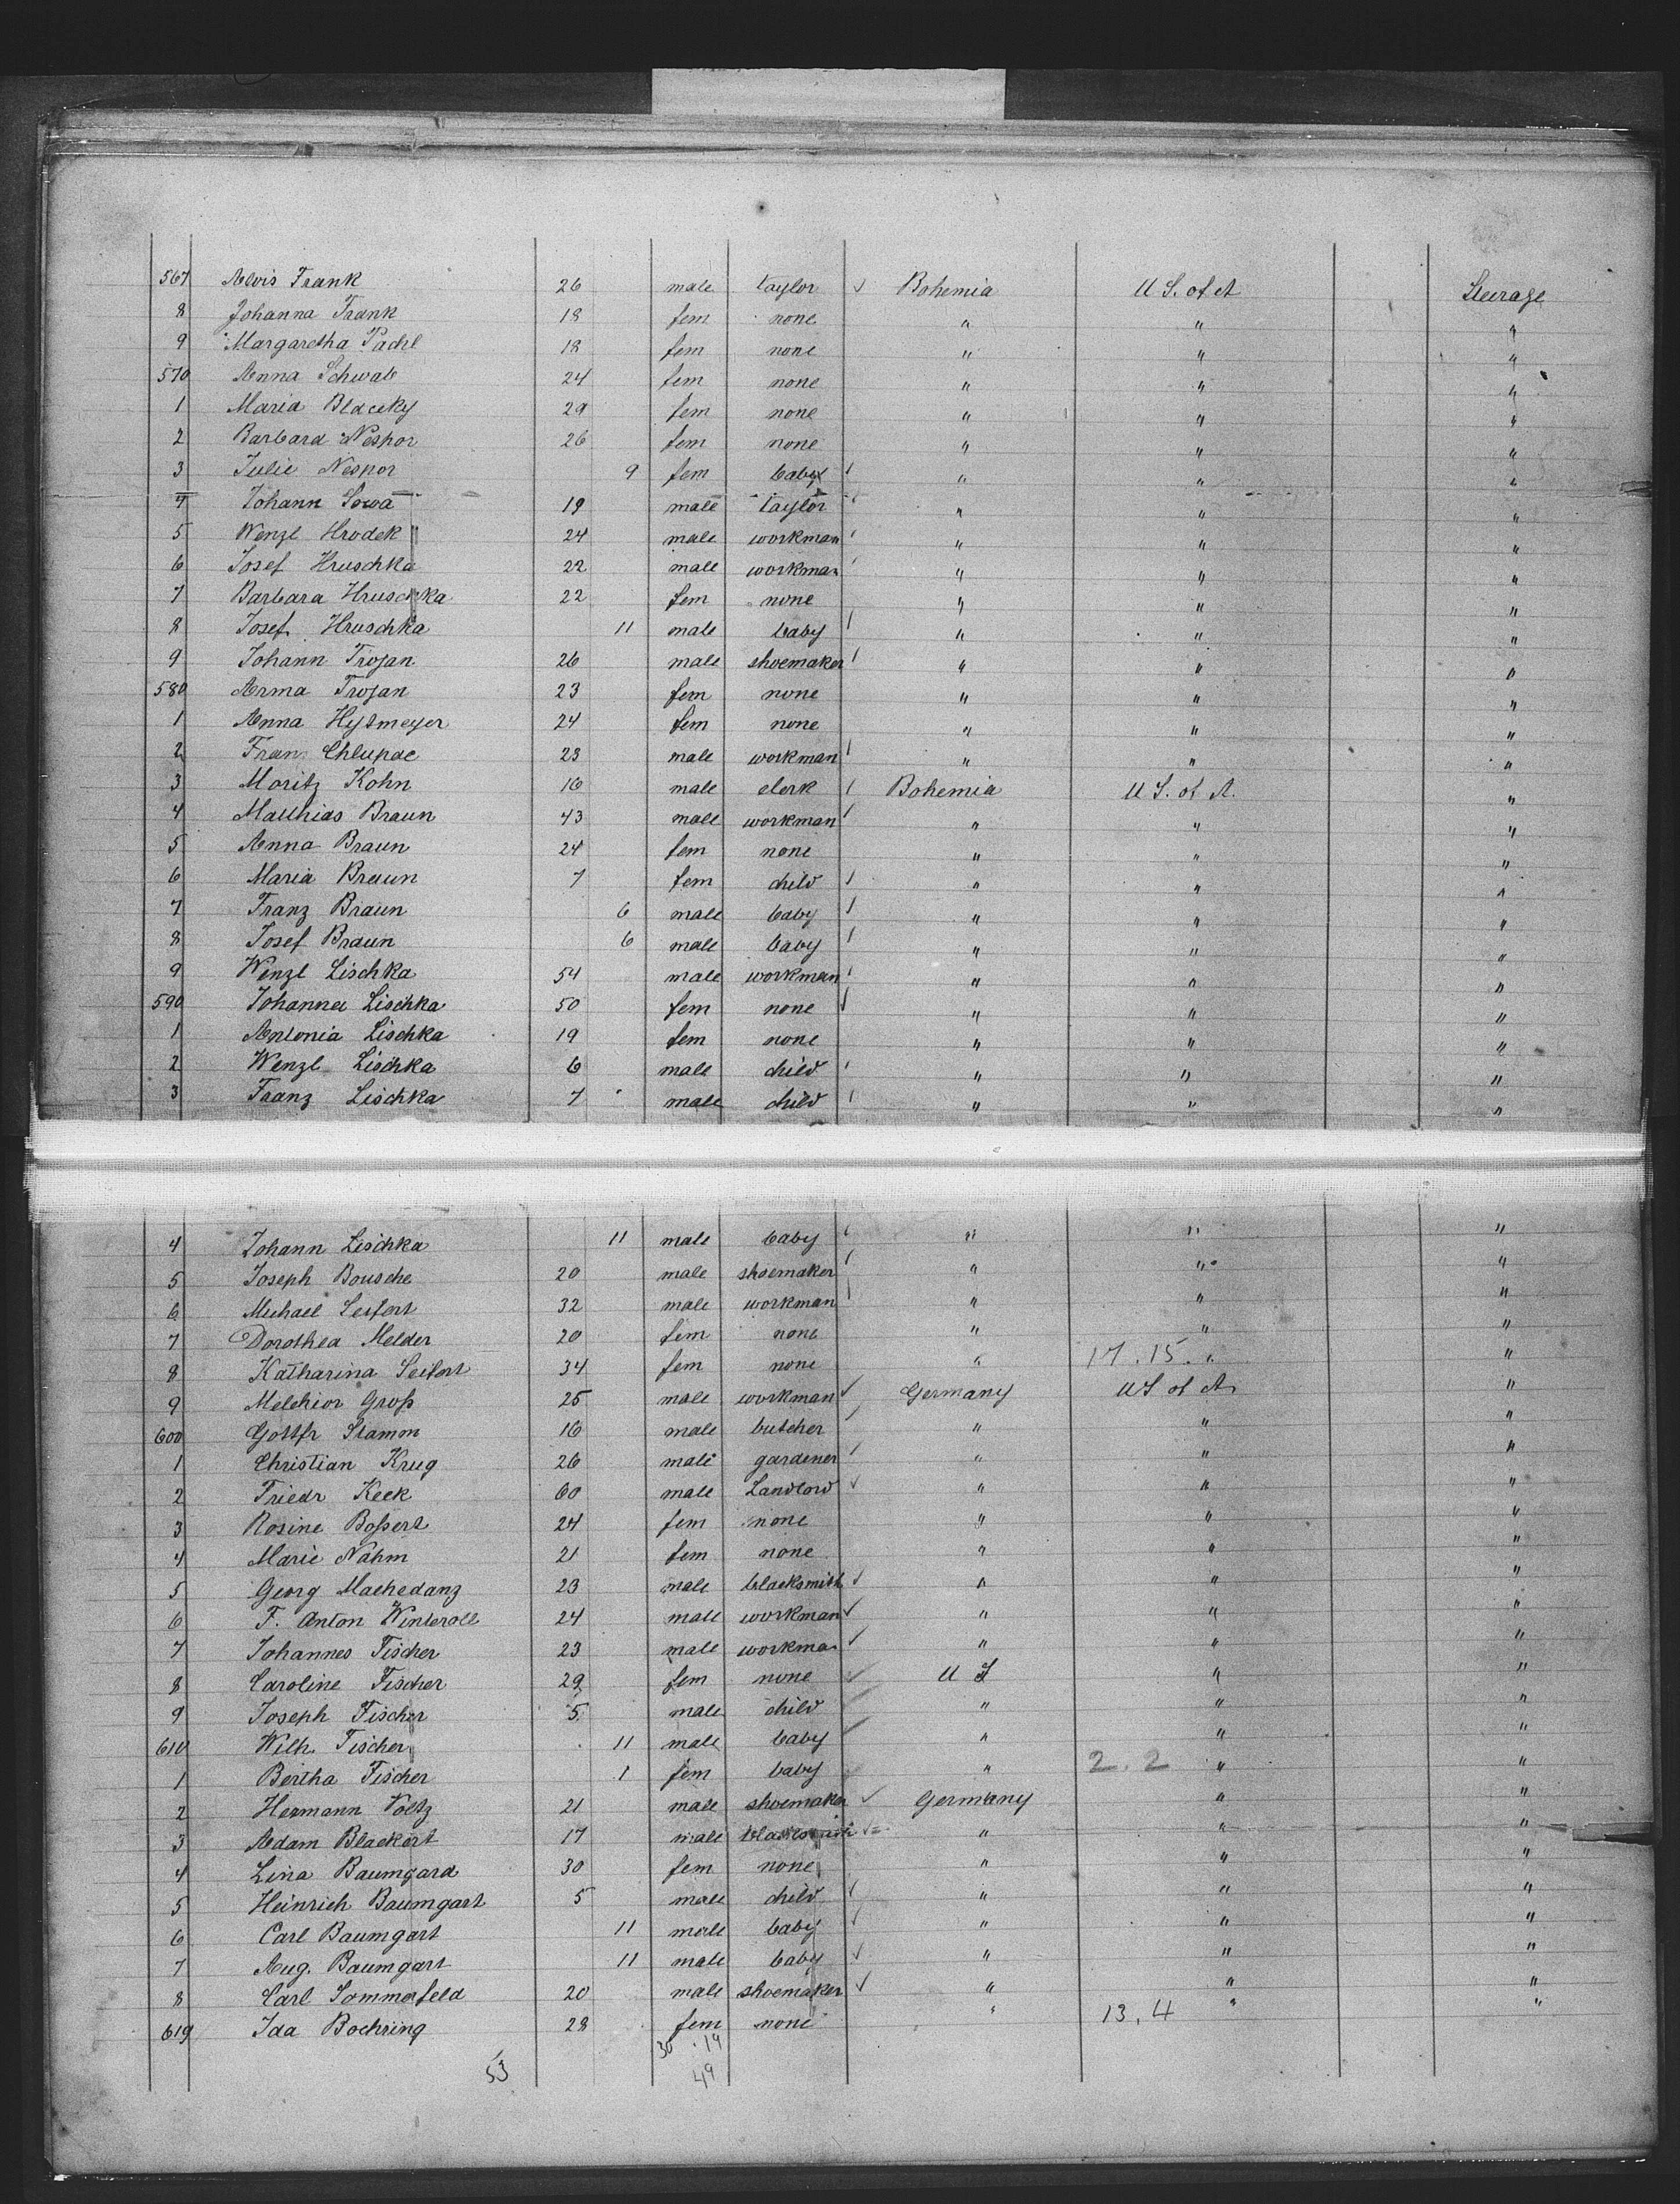 567 Alois Frank 26 male taylor ✓ Bohemia U S. of A Steerage
8 Johanna Frank 18 fem none " " "
9 Margaretha Pachl 18 fem none " " "
570 Anna Schwab 24 fem none " " "
1 Maria Blaceky 29 fem none " " "
2 Barbara Nespor 26 fem none " " "
3 Julie Nespor 9 fem baby " " "
4 Johann Sowa 19 male taylor " " "
5 Wenzl Hrodek 24 male workman " " "
6 Josef Hruschka 22 male workman " " "
7 Barbara Hruschka 22 fem none " " "
8 Josef Hruschka 11 male baby " " "
9 Johann Trojan 26 male shoemaker " " "
580 Anna Trojan 23 fem none " " "
1 Anna Hysmeyer 24 fem none " " "
2 Franz Chlupac 23 male workman " " "
3 Moritz Kohn 16 male clerk Bohemia U S. of A. "
4 Matthias Braun 43 male workman " " "
5 Anna Braun 24 fem none " " "
6 Maria Braun 7 fem child " " "
7 Franz Braun 6 male baby " " "
8 Josef Braun 6 male baby " " "
9 Wenzl Lischka 54 male workman " " "
590 Johanna Lischka 50 fem none " " "
1 Antonia Lischka 19 fem none " " "
2 Wenzl Lischka 6 male child " " "
3 Franz Lischka 7 male child " " "
4 Johann Lischka 11 male baby " " "
5 Joseph Bousche 20 male shoemaker " " "
6 Michael Seifert 32 male workman " " "
7 Dorothea Melder 20 fem none " " "
8 Katharina Seifert 34 fem none " 17. 15. " "
9 Melchior Groß 25 male workman ✓ Germany U S of A "
600 Gottfr Stamm 16 male butcher " " "
1 Christian Krug 26 male gardener " " "
2 Friedr Keck 60 male Landlord ✓ " " "
3 Rosine Boßert 24 fem none " " "
4 Marie Nahm 21 fem none " " "
5 Georg Machedanz 23 male blacksmith ✓ " " "
6 F. Anton Winteroll 24 male workman ✓ " " "
7 Johannes Fischer 23 male workman ✓ " " "
8 Caroline Fischer 29 fem none ✓ U S " "
9 Joseph Fischer 5 male child " " "
610 Wilh. Fischer 11 male baby " " "
1 Bertha Fischer 1 fem baby " 2. 2 " "
2 Hermann Voltz 21 male shoemaker ✓ Germany " "
3 Adam Blackert 17 male blacksmith ✓ " " "
4 Lina Baumgard 30 fem none " " "
5 Heinrich Baumgart 5 male child ✓ " " "
6 Carl Baumgart 11 male baby ✓ " " "
7 Aug. Baumgart 11 male baby ✓ " " "
8 Carl Sommerfeld 20 male shoemaker ✓ " " "
619 Ida Boehring 28 fem none " 13. 4 " "
30 . 19
53 49